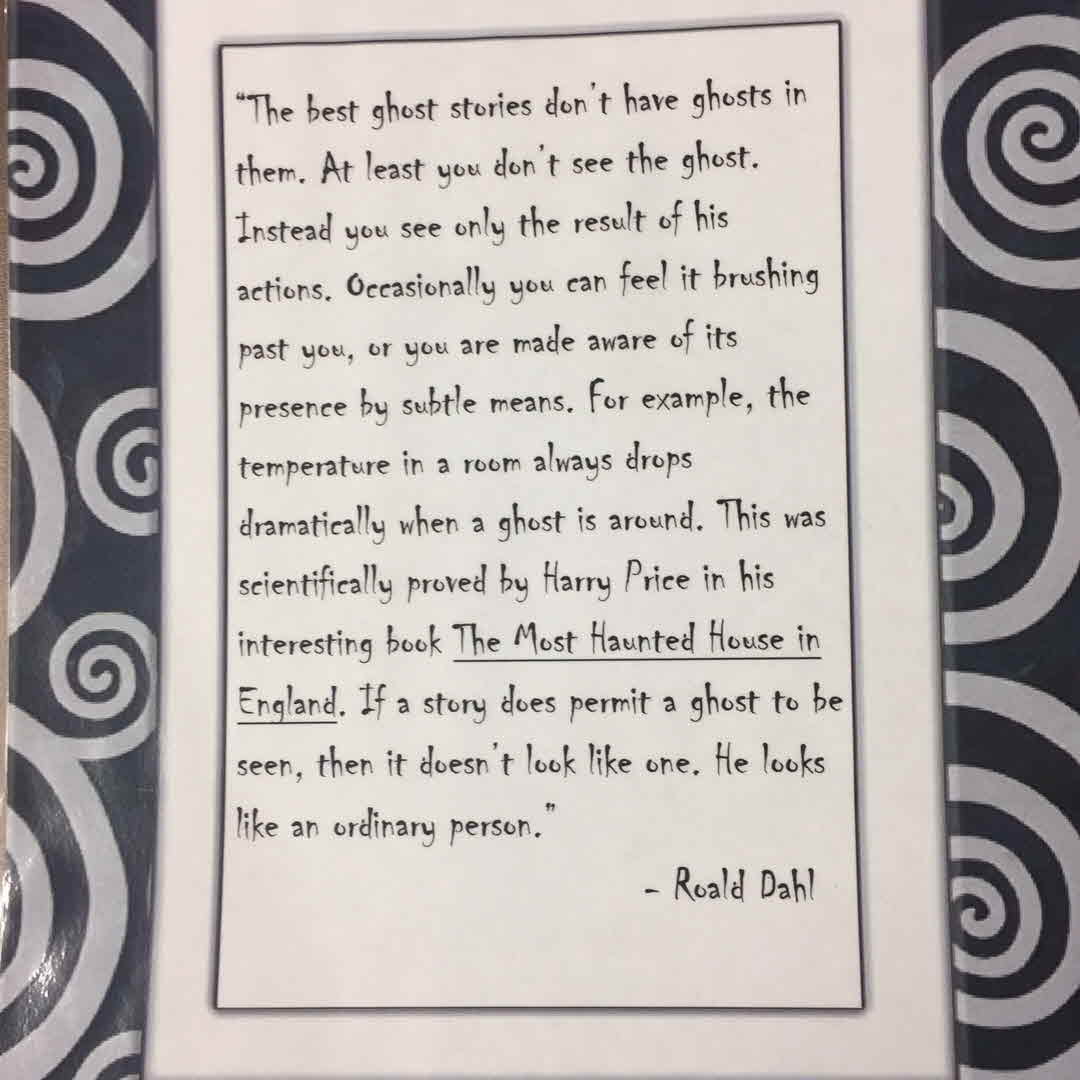 “The best ghost stories don’t have ghosts in
them. At least you don’t see the ghost.
Instead you see only the result of his
actions. Occasionally you can feel it brushing
past you, or you are made aware of its
presence by subtle means. For example, the
temperature in a room always drops
dramatically when a ghost is around. This was
scientifically proved by Harry Price in his
interesting book The Most Haunted House in
England. If a story does permit a ghost to be
seen, then it doesn’t look like one. He looks
like an ordinary person.”
- Roald Dahl